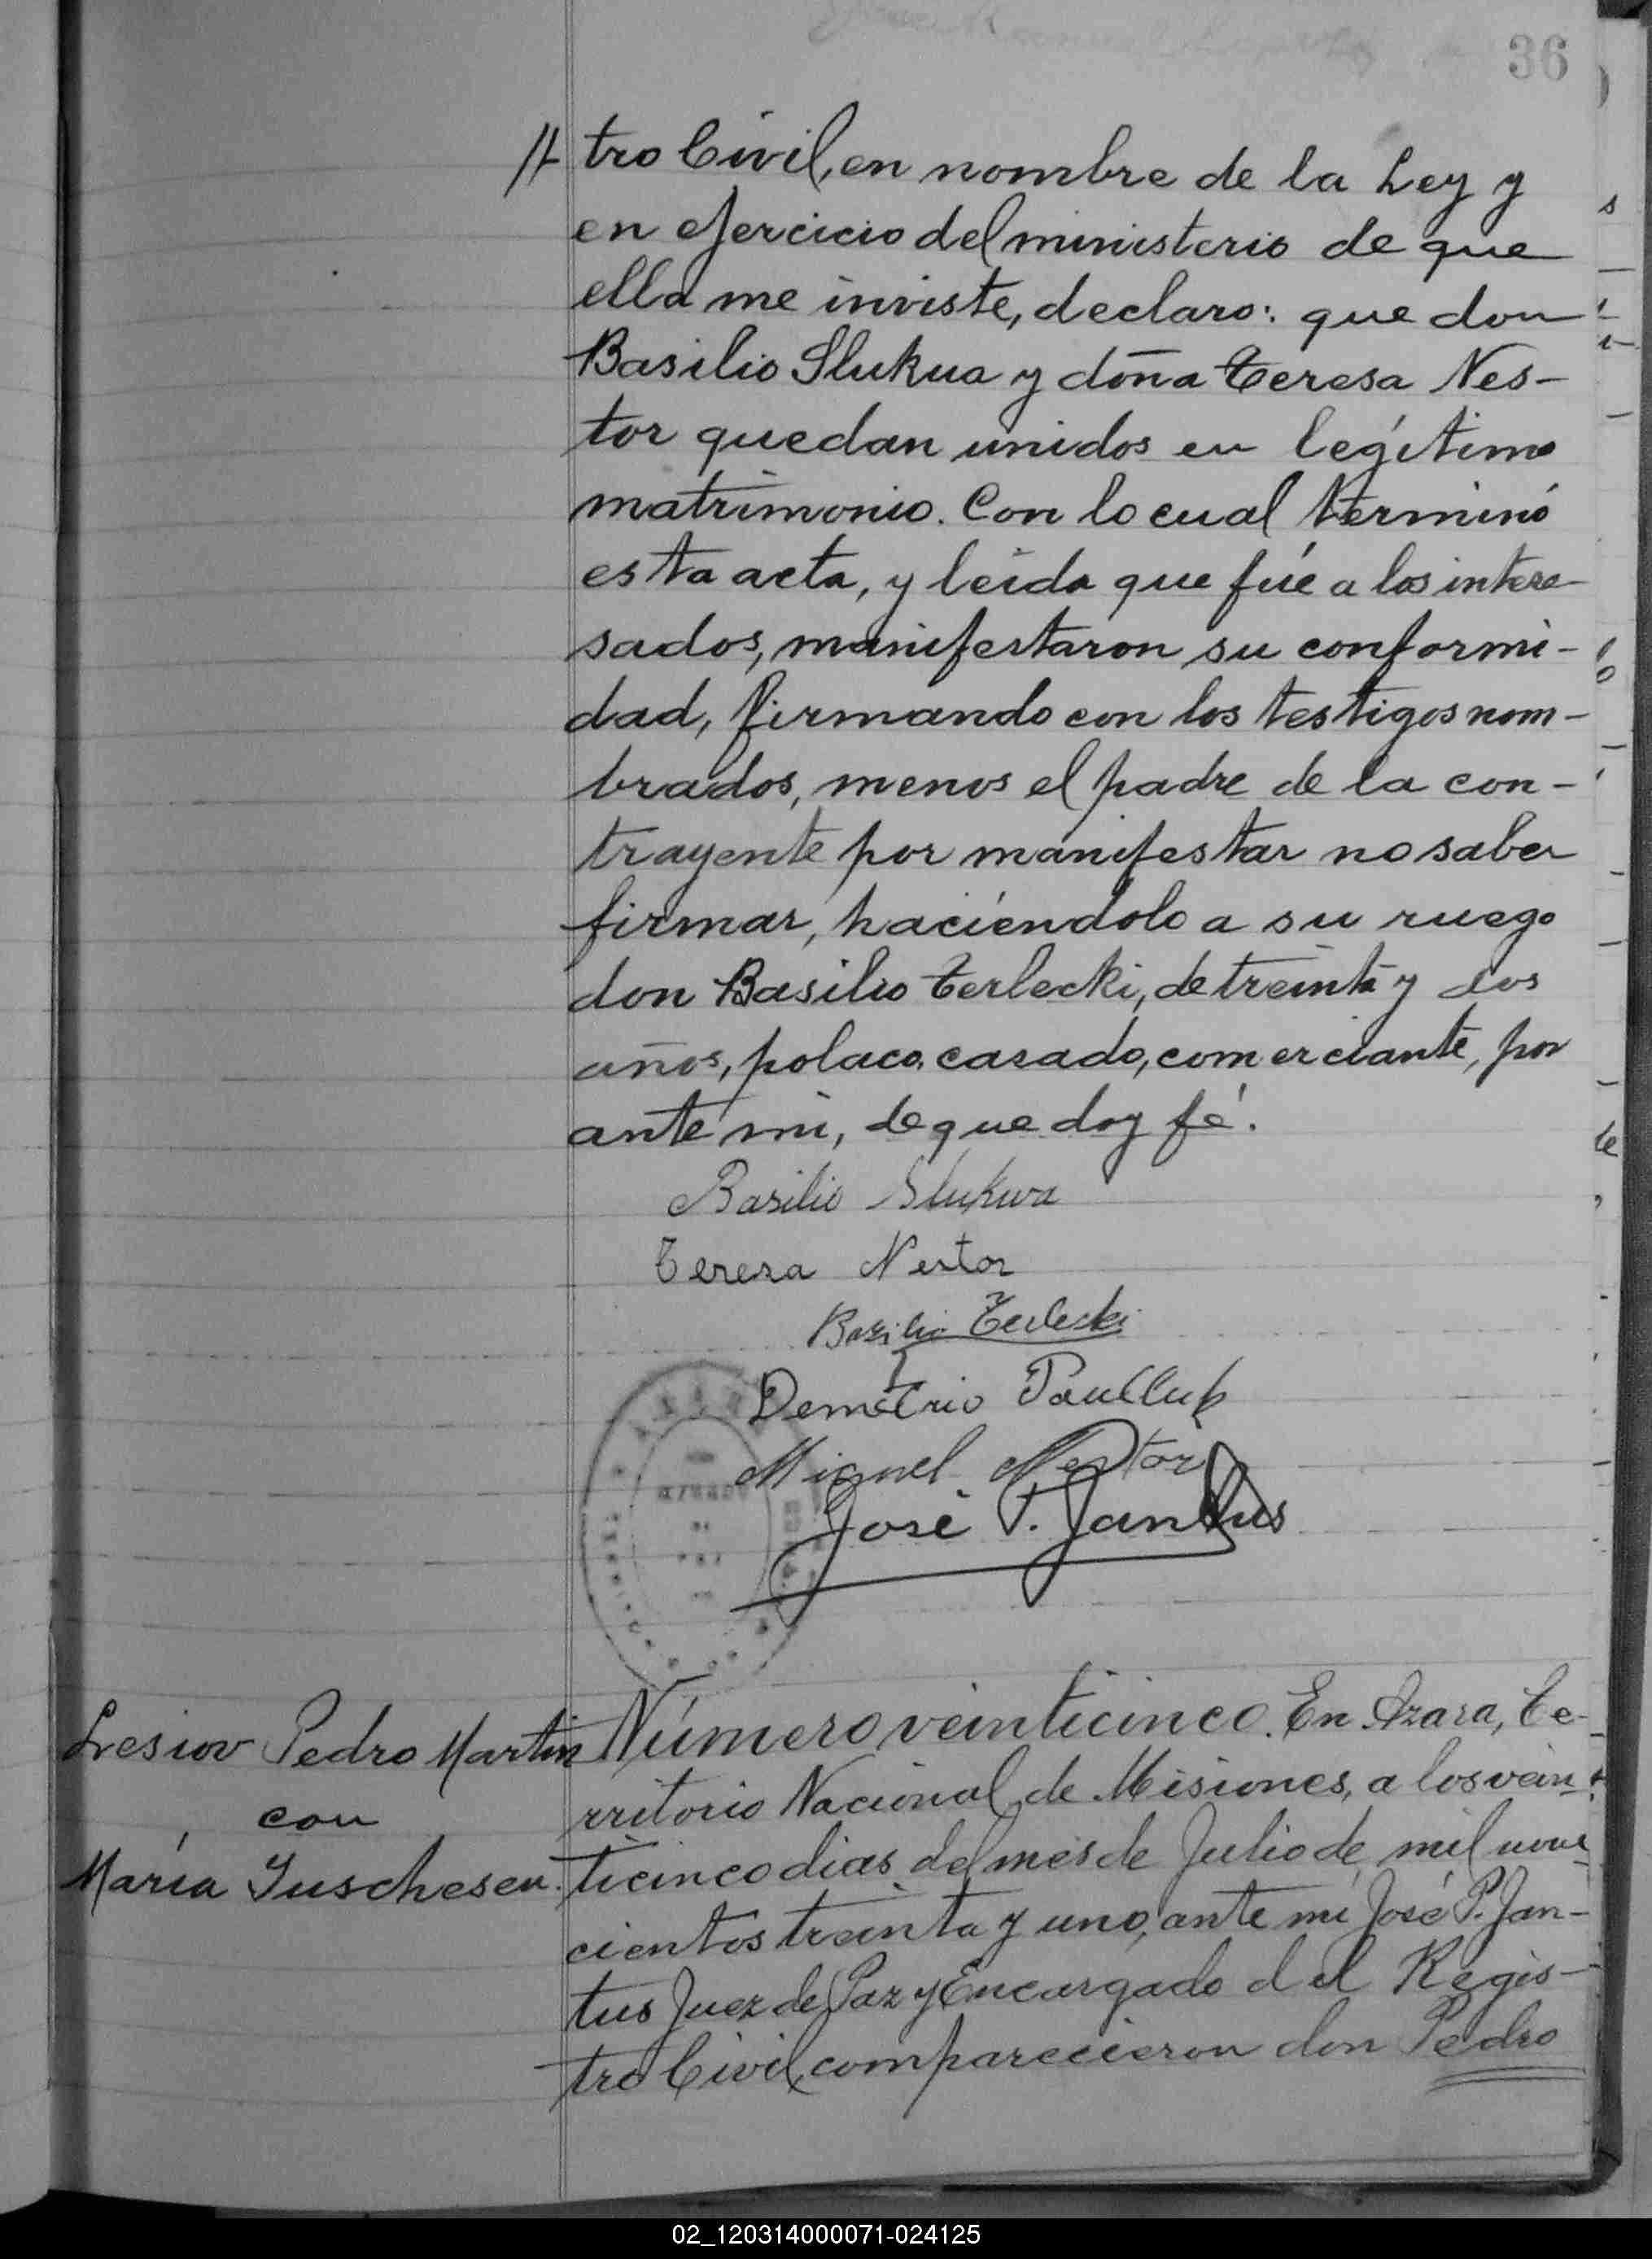 36
// tro Civil, en nombre de la Ley y
en ejercicio del ministerio de que
ella me inviste, declaro: que don
Basilio Slukua y doña Teresa Nes-
tor quedan unidos en legítimo
matrimonio. Con lo cual terminó
esta acta, y leída que fué a los intere-
sados, manifestaron su conformi-
dad, firmando con los testigos nom-
brados, menos el padre de la con-
trayente por manifestar no saber
firmar, haciéndolo a su ruego
don Basilio Terlecki, de treinta y dos
años, polaco, casado, comerciante, por
ante mi, de que doy fé.
Basilio Slukwa
Teresa Nestor
Basilio Terlecki
Demetrio
Miguel Nestor
José P. Jantus
Lesiov Pedro Martin
con
María Juschesen.
Número veinticinco. En Azara, Te-
rritorio Nacional de Misiones, a los vein-
ticinco dias del més de Julio de mil nove
cientos treinta y uno, ante mi José P. Jan-
tus Juez de Paz y Encargado del Regis-
tro Civil, comparecieron don Pedro
02_120314000071-024125